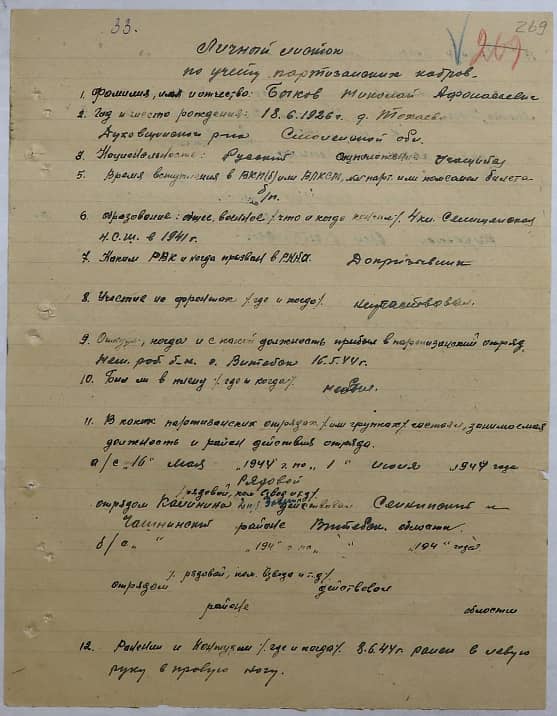 33.
269
269
Личный листок
по учету партизанских кадров.
1. Фамилия, имя и отчество: Быков Николай Афонасьевич
2. Год и место рождения: 18.6.1926 г. д.
Духовщинского р-на Смоленской обл.
3. Национальность: Русский учащийся
5. Время вступления в ВКП(б) или ВЛКСМ, № парт. или комсомол билета
б/п.
6. Образование: общее, военное /что и когда кончил/. 4 кл.
Н.С.Ш. в 1941 г.
7. Каким РВК и когда призван в РККА. Допризывник
8. Участие на фронтах /где и когда/. неучаствовал.
9. Откуда, когда и с какой должность прибыл в партизанский отряд.
Нем. раб. б-н. г. Витебск 16.5.44 г.
10. Был ли в плену /где и когда/. небыл.
11. В каких партизанских отрядах /или группах/ состоял, занимаемая
должность и район действия отряда.
а/ с "16" мая "1944" г. по "1" июля "1944 года
Рядовой
/рядовой, ком. взвод и т.д./
отрядом Калинина действовал Сенненский и
Чашнинский районе Витебск. области.
б/ с " " "194 " г. по " " "194 " года
/. рядовой, ком. взвода и т.д./
отрядом действовал
районе области
12. Ранения и контузии /где и когда/. 8.6.44 г. ранен в левую
руку в правую ногу.